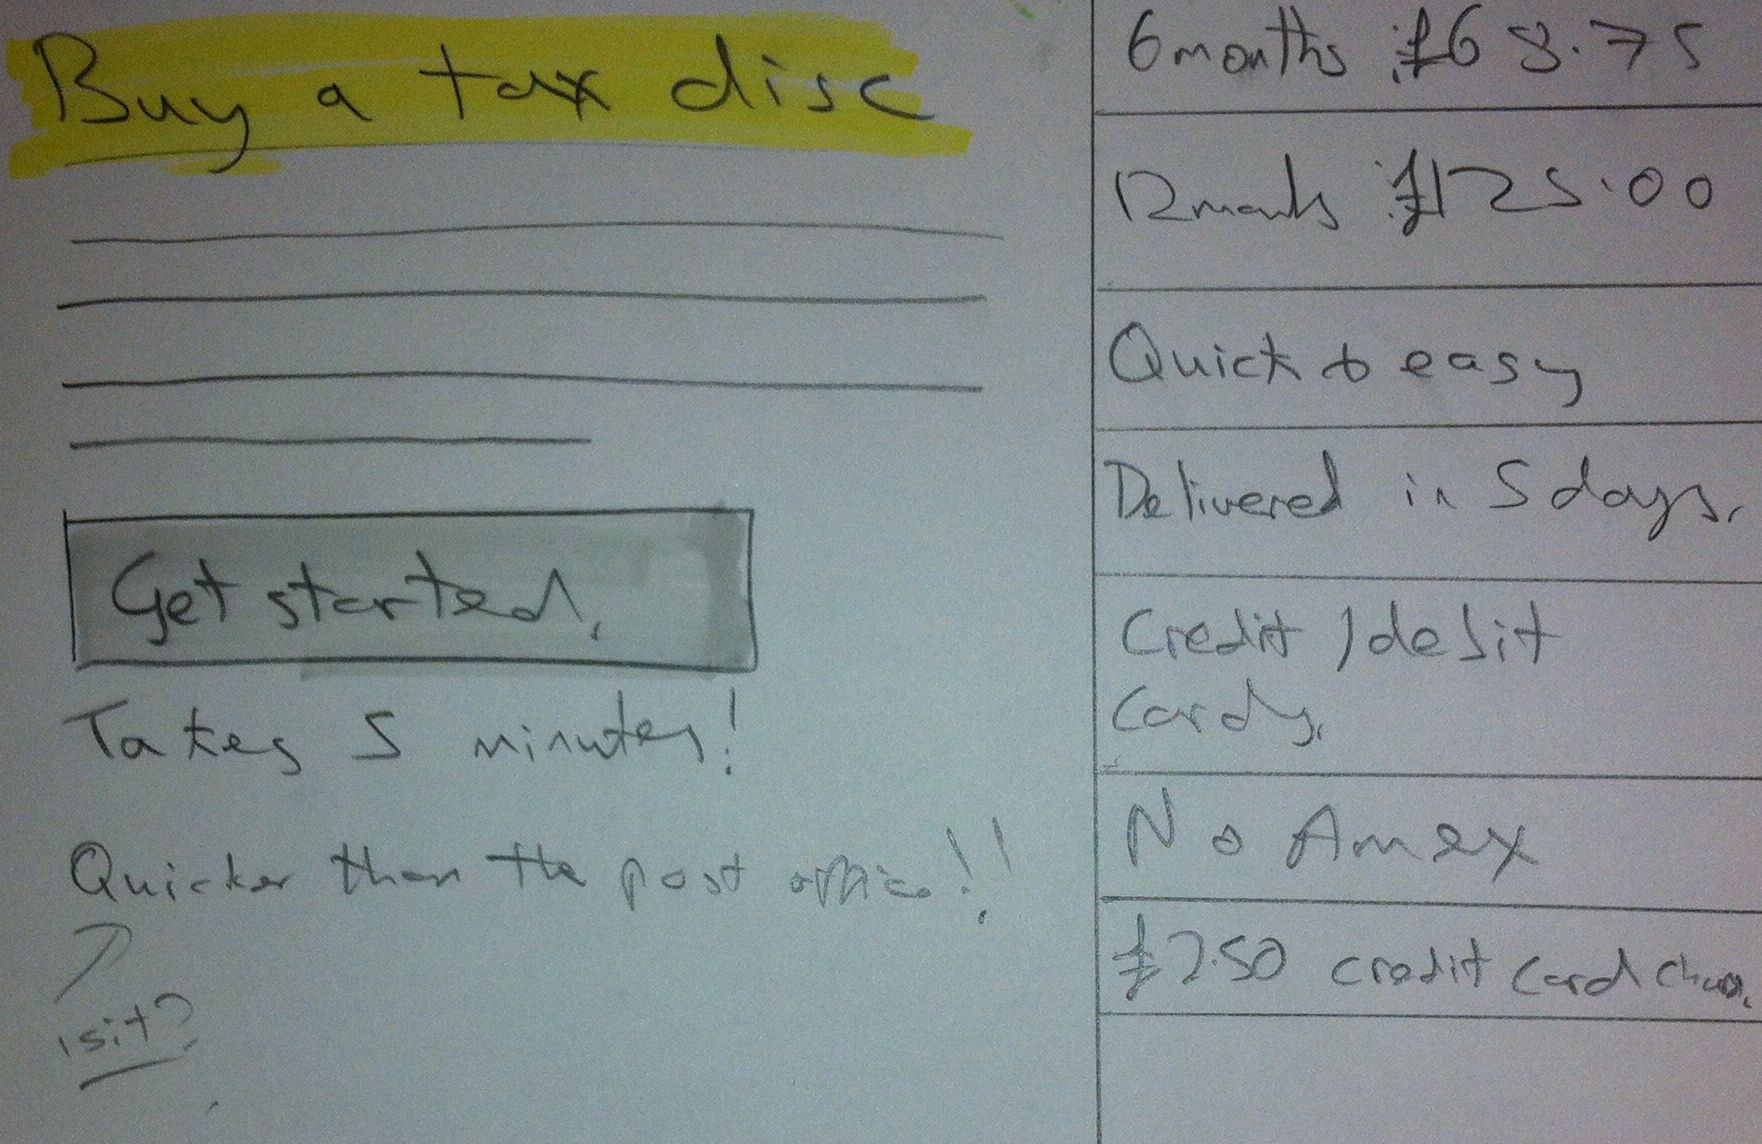 Buy a tax disc
Get started.
Takes 5 minutes!
Quicker than the post office!!
isit?
6 months : £68.75
12 months : £125.00
Quick & easy
Delivered in 5 days.
Credit / debit
Cards.
No Amex
£2.50 credit card charge.